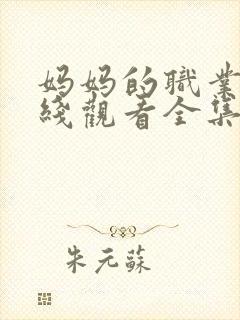 妈妈的職業
綫觀看全集
朱元蘇